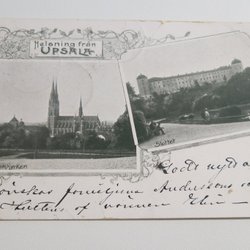 Helsning från
UPSALA
kyrkan
Slottet
Godt nytt å
önskar familjen Anderssons
af vännen Elin